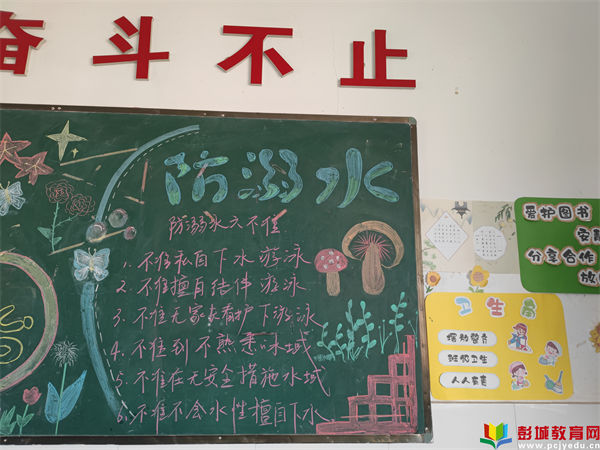 奋斗不止
防溺水
防溺水六不准
1. 不准私自下水游泳
2. 不准擅自结伴游泳
3. 不准无家长看护下游泳
4. 不准到不熟悉水域
5. 不准在无安全措施水域
6. 不准不会水性擅自下水
爱护图书
分享合作
卫生角
班级卫生
人人有责
彭城教育网
www.pcjyedu.cn